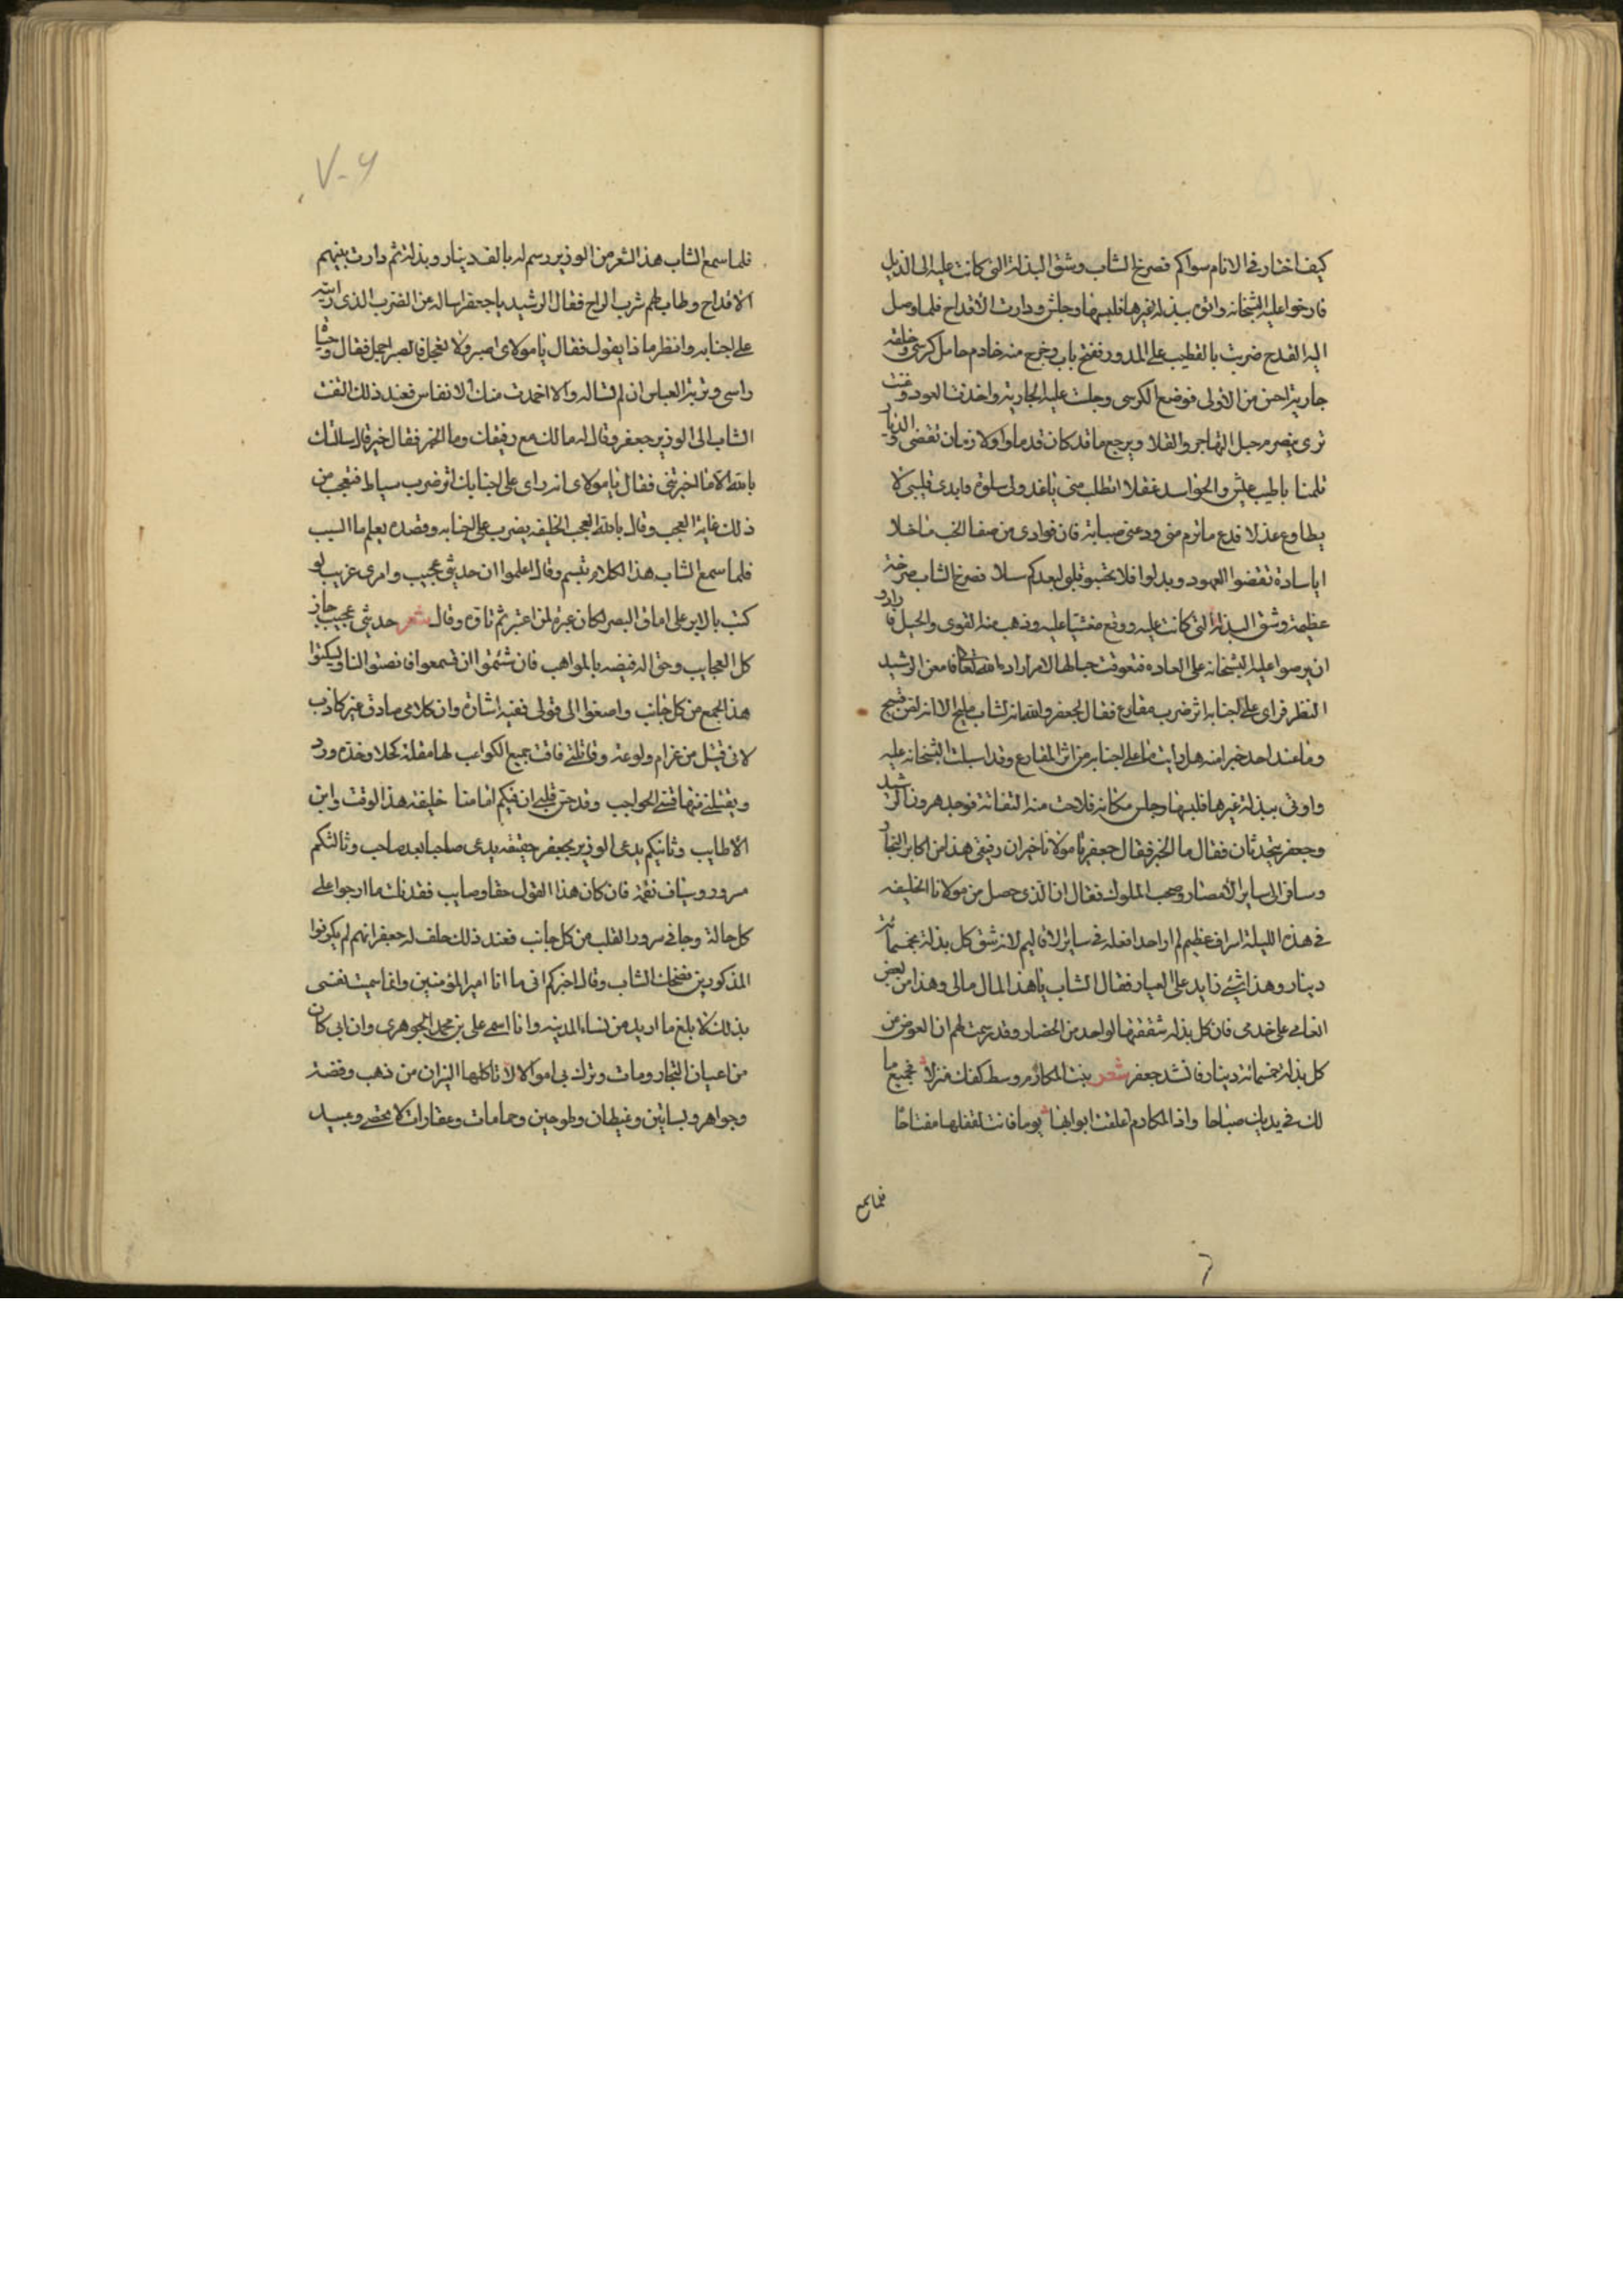 كيف اختار في الانام سواكم فصرخ الشاب وشق البذلة التي كانت عليه الى الذيل
فارخوا عليه الشخانه واتوه ببذله غيرها فلبسها وجلس ودارت الاقداح فلما وصل
اليه القدح ضرب بالقضيب على المدور ففتح باب وخرج منه خادم حامل كرسي وخلفه
جارية احسن من الاولى فوضع الكرسي وجلست عليه الجارية واخذت العود وغنت
ترى ينصرم حبل التهاجر والقلا ويرجع ما قد كان قدما اولا زمان تقضى والديار
تلمنا بطيب عيش والحواسد غفلا اتطلب مني يا عذولى سلوة فابدى قلبي لا
يطاوع عذلا فدع ما تروم مني ودعنى صبابة فان فوادى من صفا الحب ما خلا
ايا سادة نقضوا العهود وبدلوا فلا تحسبو قلبي لبعدكم سلا فصرخ الشاب صرخة
عظيمة وشق البذلة التي كانت عليه ووقع مغشيا عليه وذهب منه القوى والحيل فارادو
ان يرموا عليه الشخانه على العاده فتعوقت حبالها لامر اراده الله تعالى فامعن الرشيد
النظر فراى على اجنابه اثر ضرب مقارع فقال لجعفر والله انه لشاب مليح الا انه لص قبيح
وما عند احد خبر منه هل رايت ما على اجنابه من اثر المقارع وقد اسبلت الشخانه عليه
واوتى ببذلة غيرها فلبسها وجلس مكانه فلاحت منه التفاتة فوجد هرون الرشيد
وجعفر يتحدثان فقال ما الخبر فقال جعفر يا مولانا خير ان رفيقي هذا من اكابر التجار
وسافر الى ساير الامصار وصحب الملوك فقال ان الذي حصل من مولانا الخليفه
في هذه الليلة اسراف عظيم لم ار احدا فعله في ساير الاقاليم لانه شق كل بذلة بخمسمائة
دينار وهذا شئ زايد على العيار فقال الشاب يا هذا المال مالى وهذا من بعض
انعامى على خدمى فان كل بذله شققتها لواحد من الحضار وقد رسمت لهم ان العوض من
كل بذله خمسمائة دينار فانشد جعفر شعر بنت المكارم وسط كفك منزلا فجميع ما
لك في يديك مباحا واذا المكارم اغلقت ابوابها يوما فانت لقفلها مفتاحا
فلما سمع
٧٠٦
فلما سمع الشاب هذا الشعر من الوزير رسم له بالف دينار وبذلة ثم دارت بينهم
الاقداح وطاب لهم شرب الراح فقال الرشيد يا جعفر اساله عن الضرب الذى رايته
على اجنابه وانظر ماذا يقول فقال يا مولاى اصبر ولا تعجل فالصبر اجمل فقال وحياة
راسى وتربة العباس ان لم تساله والا اخمدت منك الانفاس فعند ذلك التفت
الشاب الى الوزير جعفر وقال له مالك مع رفيقك وما الخبر فقال خير قال سالتك
بالله الا ما اخبرتني فقال يا مولاى انه راى على اجنابك اثر ضرب سياط فتعجب من
ذلك غاية العجب وقال يا لله العجب الخليفه يضرب على اجنابه وقصده يعلم ما السبب
فلما سمع الشاب هذا الكلام تبسم وقال اعلموا ان حديثي عجيب وامرى غريب لو
كتب بالابر على اماق البصر لكان عبرة لمن اعتبر ثم تاوه وقال شعر حديثي عجيب حاز
كل العجايب وحق اله فيضه بالمواهب فان شئتموا ان تسمعوا فانصتوا لنا ويسكتوا
هذا الجمع من كل جانب واصغوا الى قولى ففيه اشارة وان كلامى صادق غير كاذب
لانى قتيل من غرام ولوعة وقاتلتي فاقت جميع الكواعب لها مقلة كحلا وخده ورد
ويقتلنى منها قسى الحواجب وقد حس قلبي ان فيكم امامنا خليفة هذا الوقت وابن
الاطايب وثانيكم يدعى الوزير بجعفر حقيقه يدعى صاحبا بعد صاحب وثالثكم
مسرور سياف نقمة فان كان هذا القول حقا وصايب فقد نلت ما ارجوا على
كل حالة وجا في سرور القلب من كل جانب فعند ذلك حلف له جعفر انهم لم يكونوا
المذكورين فضحك الشاب وقال اخبركم انى ما انا امير المؤمنين وانما سميت نفسى
بذلك لابلغ ما اريد من نساء المدينه وانا اسمى على بن محمد الجوهرى وان ابى كان
من اعيان التجار ومات وترك لى اموالا لا تاكلها النيران من ذهب وفضة
وجواهر وبساتين وغيطان وطواحين وحمامات وعقارات لا تحصى وعبيد